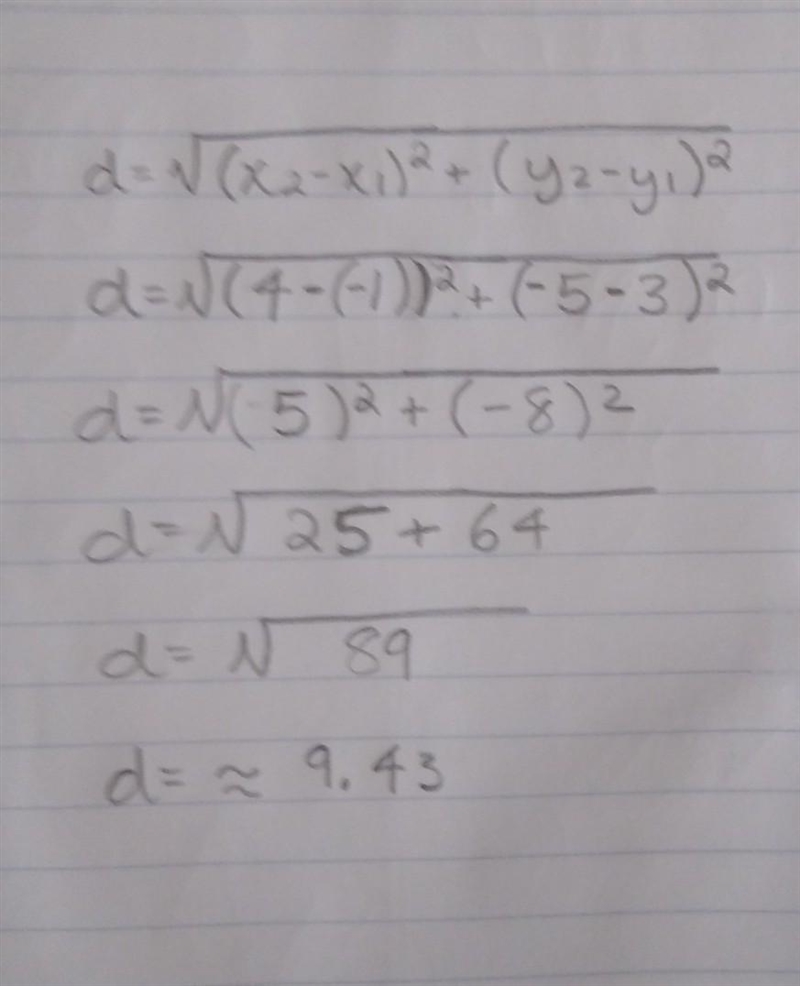 d=√(x₂-x₁)²+(y₂-y₁)²
d=√(4-(-1))²+(-5-3)²
d=√(5)²+(-8)²
d=√25+64
d=√89
d=≈ 9.43